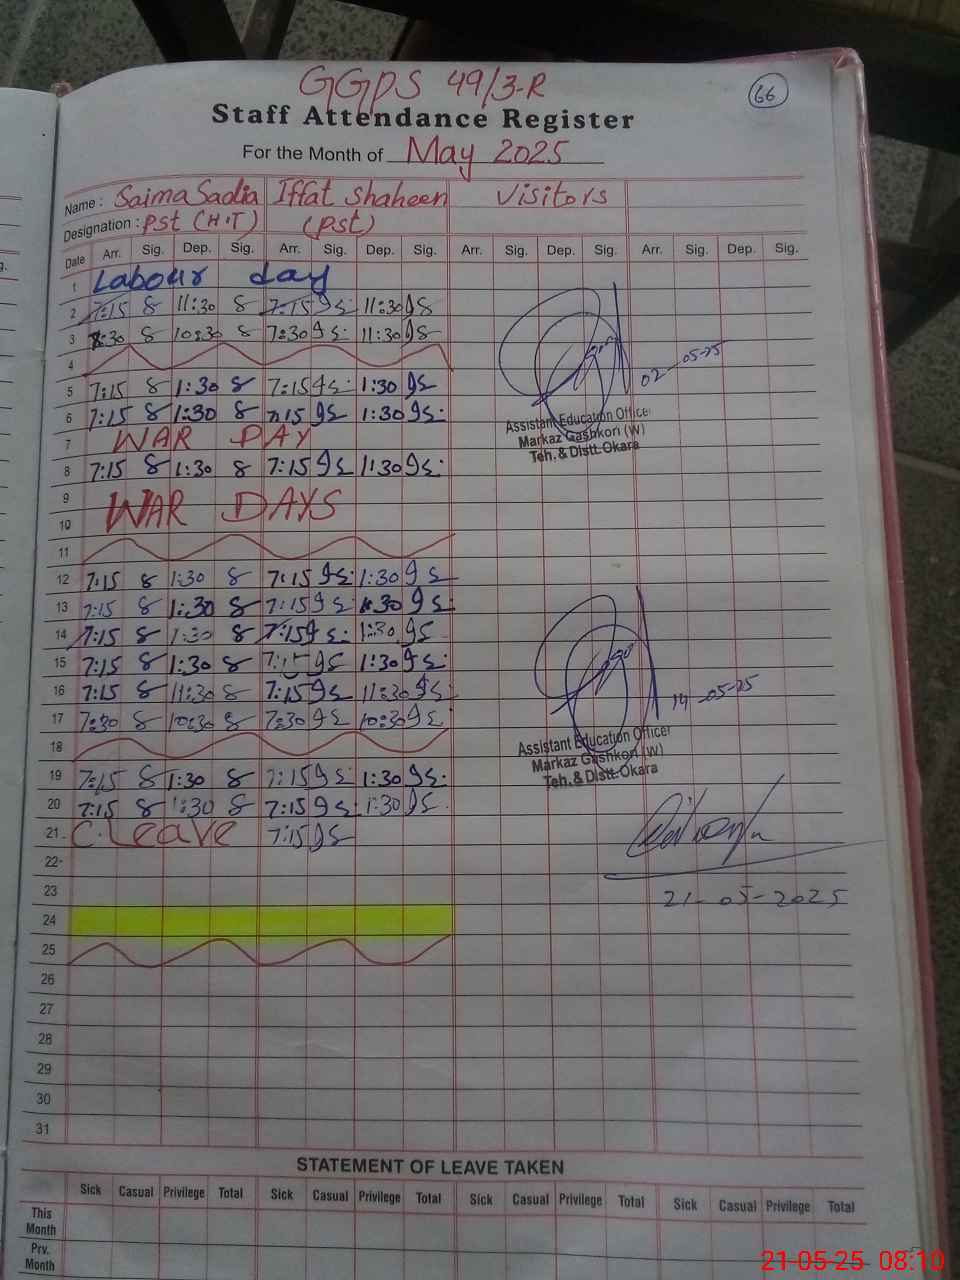 GGPS 49/3-R
66
Staff Attendance Register
For the Month of May 2025
Name: Saima Sadia Iffat Shaheen Visitors
Designation: PST (H.T) (PST)
Date Arr. Sig. Dep. Sig. Arr. Sig. Dep. Sig. Arr. Sig. Dep. Sig. Arr. Sig. Dep. Sig.
1 Labour day
2 7:15 11:30 7:15 11:30
3 8:30 10:30 7:30 11:30
4
02-05-25
5 7:15 1:30 7:15 1:30
6 7:15 1:30 7:15 1:30
Assistant Education Officer
7 WAR DAY
Markaz Gashkori (W)
Teh. & Distt. Okara
8 7:15 1:30 7:15 1:30
9
WAR DAYS
10
11
12 7:15 1:30 7:15 1:30
13 7:15 1:30 7:15 1:30
14 7:15 1:30 7:15 1:30
15 7:15 1:30 7:15 1:30
16 7:15 11:30 7:15 11:30
14-05-25
17 7:30 10:30 7:30 10:30
18
Assistant Education Officer
Markaz Gashkori (W)
Teh. & Distt. Okara
19 7:15 1:30 7:15 1:30
20 7:15 1:30 7:15 1:30
21 C. Leave 7:15
22
23
21-05-2025
24
25
26
27
28
29
30
31
STATEMENT OF LEAVE TAKEN
Sick Casual Privilege Total Sick Casual Privilege Total Sick Casual Privilege Total Sick Casual Privilege Total
This
Month
Prv.
Month
21-05-25 08:10